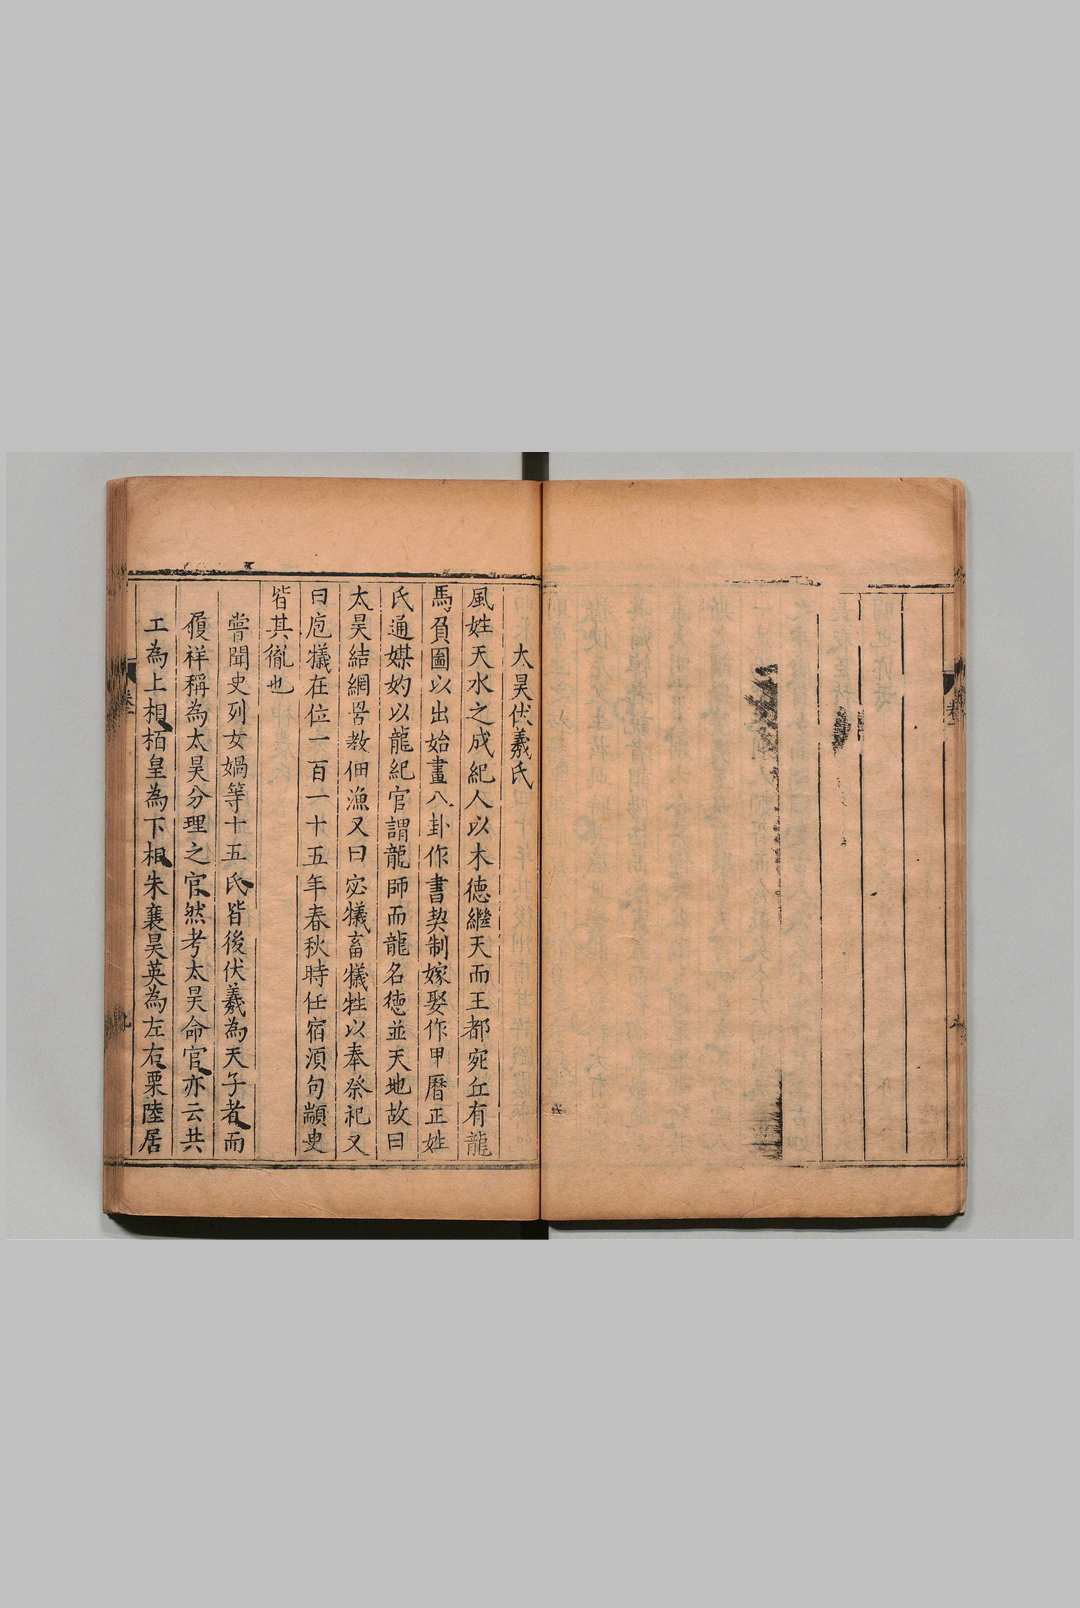 太昊伏羲氏
風姓天水之成紀人以木德繼天而王都宛丘有龍
馬負圖以出始畫八卦作書契制嫁娶作甲曆正姓
氏通媒妁以龍紀官謂龍師而龍名德並天地故曰
太昊結網罟教佃漁又曰宓犧畜犧牲以奉祭祀又
曰庖犧在位一百一十五年春秋時任宿須句顓臾
皆其胤也
嘗聞史列女媧等十五氏皆後伏羲為天子者而
履祥稱為太昊分理之官然考太昊命官亦云共
工為上相栢皇為下相朱襄昊英為左右栗陸居